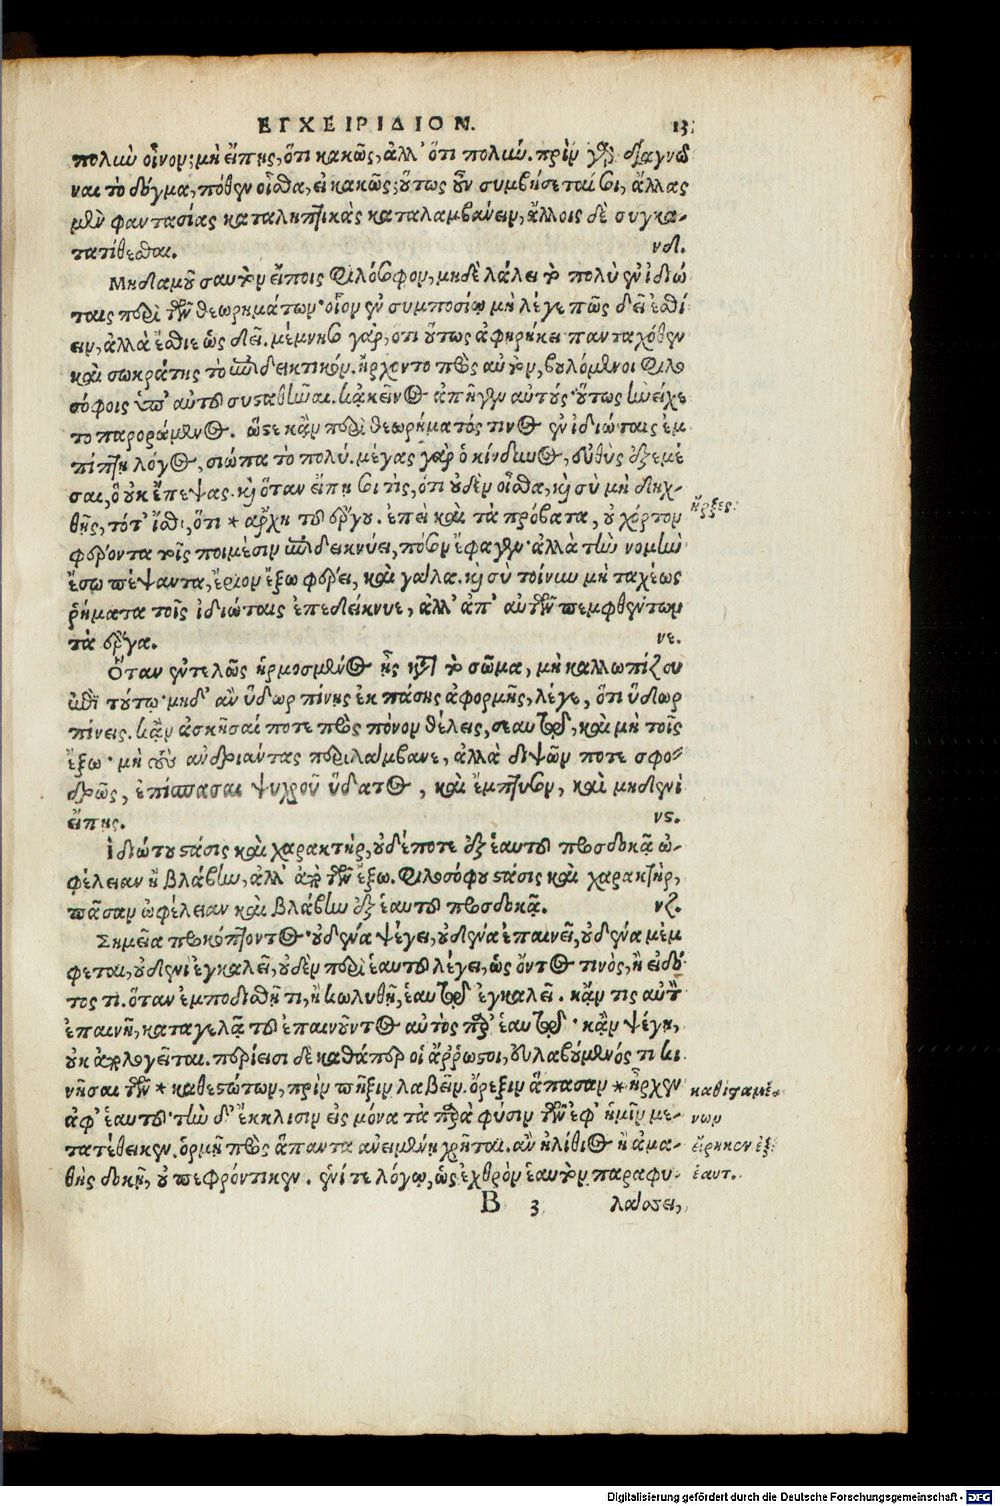 ΕΓΧΕΙΡΙΔΙΟΝ. 13
πολὺν οἶνον; μὴ εἴπῃς, ὅτι κακῶς, ἀλλ' ὅτι πολύν. πρὶν γὰρ διαγνῶ
ναι τὸ δόγμα, πόθεν οἶσθα, εἰ κακῶς; οὕτως οὖν συμβήσεταί σοι, ἄλλας
μὲν φαντασίας καταληπτικὰς καταλαμβάνειν, ἄλλοις δὲ συγκα-
τατίθεσθαι. νδ.
Μηδαμοῦ σαυτὸν εἴποις φιλόσοφον, μηδὲ λάλει τὸ πολὺ ἐν ἰδιώ
ταις περὶ τῶν θεωρημάτων· οἷον ἐν συμποσίῳ μὴ λέγε πῶς δεῖ ἐσθί
ειν, ἀλλὰ ἔσθιε ὡς δεῖ. μέμνησο γὰρ, ὅτι οὕτως ἀφῃρήκει πανταχόθεν
καὶ σωκράτης τὸ ἐπιδεικτικόν. ἤρχοντο πρὸς αὐτὸν, βουλόμενοι φιλο
σόφοις ὑπ' αὐτοῦ συσταθῆναι. κἀκεῖνος ἀπῆγεν αὐτούς· οὕτως ἠνείχε
το παρορώμενος. ὥστε κἂν περὶ θεωρήματός τινος ἐν ἰδιώταις ἐμ
πίπτῃ λόγος, σιώπα τὸ πολύ. μέγας γὰρ ὁ κίνδυνος, εὐθὺς ἐξεμέ
σαι, ὃ οὐκ ἔπεψας. καὶ ὅταν εἴπῃ σοι τὶς, ὅτι οὐδὲν οἶσθα, καὶ σὺ μὴ δηχ-
θῇς, τότ' ἴσθι, ὅτι * ἄρχῃ τοῦ ἔργου. ἐπεὶ καὶ τὰ πρόβατα, οὐ χόρτον
ἤρξες.
φέροντα τοῖς ποιμέσιν ἐπιδεικνύει, πόσον ἔφαγεν· ἀλλὰ τὴν νομὴν
ἔσω πέψαντα, ἔριον ἔξω φέρει, καὶ γάλα. καὶ σὺ τοίνυν μὴ ταχέως
ῥήματα τοῖς ἰδιώταις ἐπεδείκνυε, ἀλλ' ἀπ' αὐτῶν πεμφθέντων
τὰ ἔργα. νε.
Ὅταν εὐτελῶς ἡρμοσμένος ᾖς κατὰ τὸ σῶμα, μὴ καλλωπίζου
ἐπὶ τούτῳ· μηδ' ἂν ὕδωρ πίνῃς ἐκ πάσης ἀφορμῆς, λέγε, ὅτι ὕδωρ
πίνεις. κἂν ἀσκῆσαί ποτε πρὸς πόνον θέλεις, σεαυτῷ, καὶ μὴ τοῖς
ἔξω· μὴ τοὺς ἀνδριάντας περιλάμβανε, ἀλλὰ διψῶν ποτε σφο-
δρῶς, ἐπίσπασαι ψυχροῦ ὕδατος, καὶ ἔμπτυσον, καὶ μηδενὶ
εἴπῃς. νς.
Ἰδιώτου στάσις καὶ χαρακτήρ, οὐδέποτε ἐξ ἑαυτοῦ προσδοκᾷ ὠ-
φέλειαν ἢ βλάβην, ἀλλ' ἀπὸ τῶν ἔξω. φιλοσόφου στάσις καὶ χαρακτήρ,
πᾶσαν ὠφέλειαν καὶ βλάβην ἐξ ἑαυτοῦ προσδοκᾷ. νζ.
Σημεῖα προκόπτοντος· οὐδένα ψέγει, οὐδένα ἐπαινεῖ, οὐδένα μέμ
φεται, οὐδενὶ ἐγκαλεῖ, οὐδὲν περὶ ἑαυτοῦ λέγει, ὡς ὄντος τινὸς, ἢ εἰδό
τος τι. ὅταν ἐμποδισθῇ τι, ἢ κωλυθῇ, ἑαυτῷ ἐγκαλεῖ. κἄν τις αὐτὸν
ἐπαινῇ, καταγελᾷ τοῦ ἐπαινοῦντος αὐτὸς παρ' ἑαυτῷ· κἂν ψέγῃ,
οὐκ ἀπολογεῖται. περίεισι δὲ καθάπερ οἱ ἄρρωστοι, εὐλαβούμενός τι κι
νῆσαι τῶν * καθεστώτων, πρὶν πῆξιν λαβεῖν. ὄρεξιν ἅπασαν * ἦρχεν
καθισταμέ-
ἀφ' ἑαυτοῦ· τὴν δ' ἔκκλισιν εἰς μόνα τὰ παρὰ φύσιν τῶν ἐφ' ἡμῖν με-
νων
τατέθεικεν. ὁρμῇ πρὸς ἅπαντα ἀνειμένῃ χρῆται. ἂν ἠλίθιος ἢ ἀμα-
εἴρηκεν ἐξ
θὴς δοκῇ, οὐ πεφρόντικεν. ἑνί τε λόγῳ, ὡς ἐχθρὸν ἑαυτὸν παραφυ-
ἑαυτ.
B 3 λάσσει,
Digitalisierung gefördert durch die Deutsche Forschungsgemeinschaft - DFG